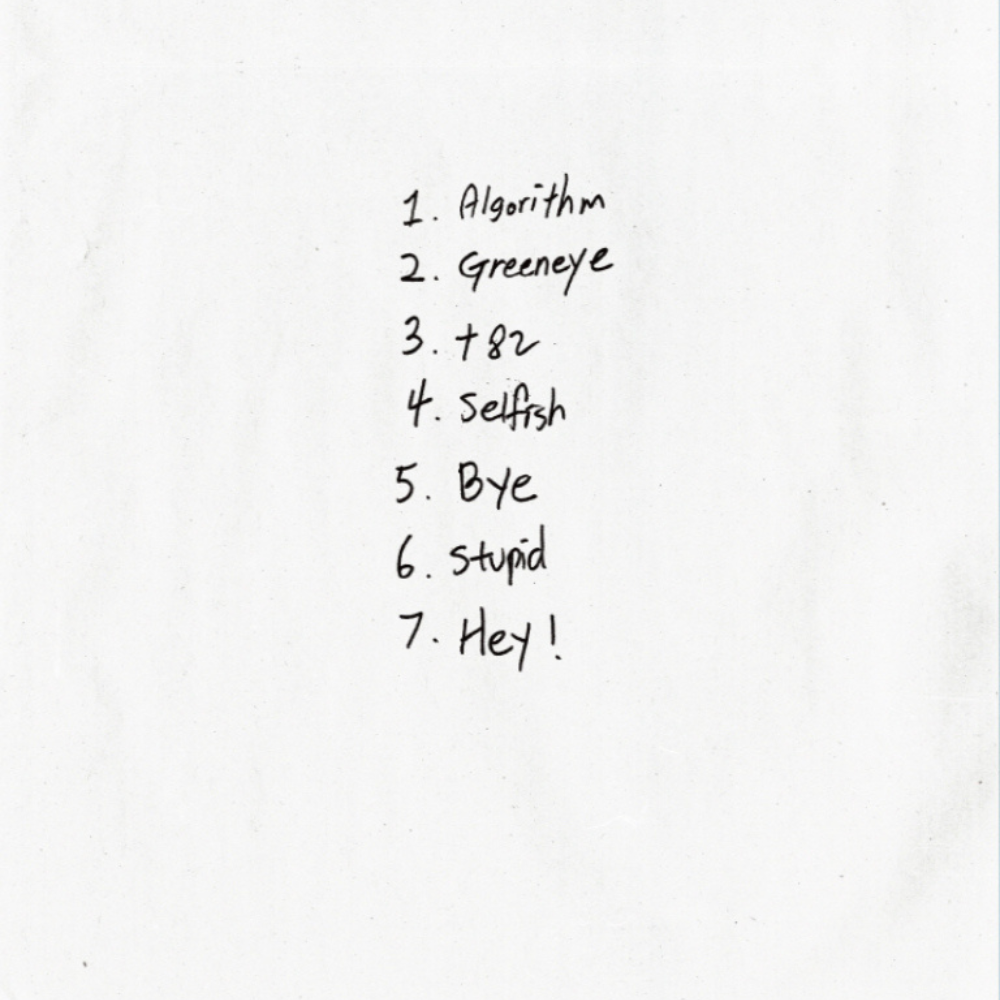 1. Algorithm
2. Greeneye
3. +82
4. Selfish
5. Bye
6. Stupid
7. Hey!